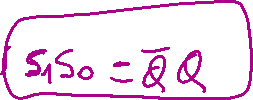 S₁S₀ = Q̅ Q